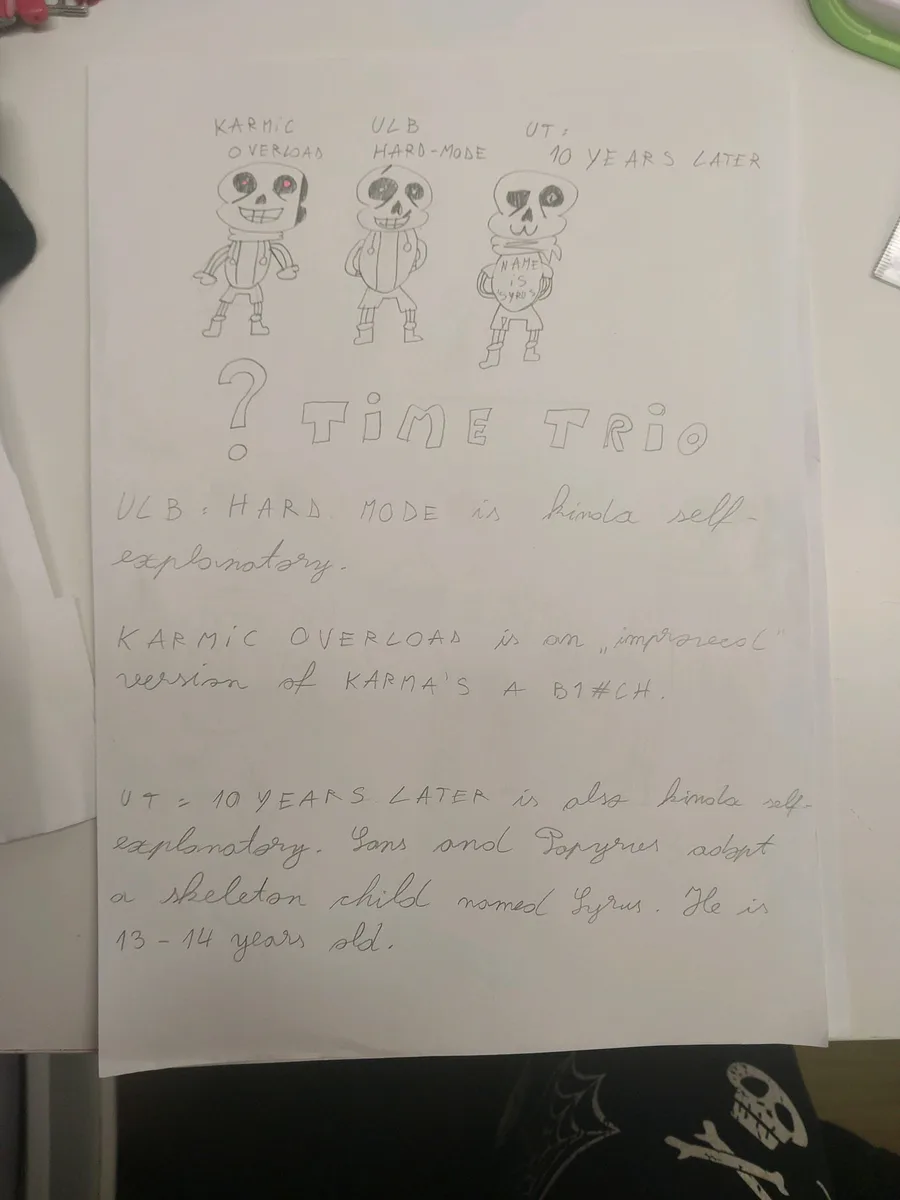 KARMiC
OVERLOAD
ULB
HARD-MODE
UT:
10 YEARS LATER
NAME
iS
"SYRUS"
? TiME TRiO
ULB: HARD MODE is kinda self-
explanatory.
KARMiC OVERLOAD is an „improved"
version of KARMA'S A B1#CH.
UT: 10 YEARS LATER is also kinda self-
explanatory. Sans and Papyrus adopt
a skeleton child named Syrus. He is
13-14 years old.